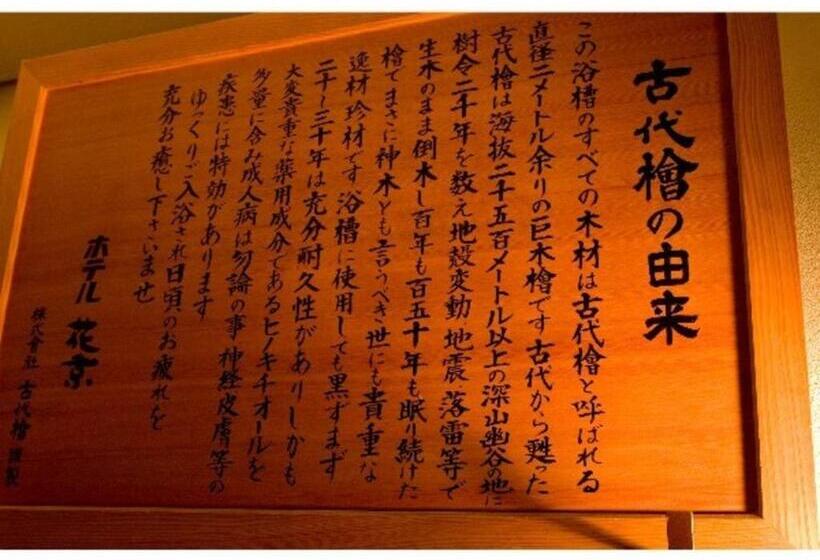 古代檜の由来
この浴槽のすべての木材は古代檜と呼ばれる
直径二メートル余りの巨木檜です古代から甦った
古代檜は海抜二千五百メートル以上の深山幽谷の地に
樹令二千年を数え地殻変動、地震、落雷等で
生木のまま倒木し百年も百五十年も眠り続けた
檜でまさに神木とも言うべき世にも貴重な
逸材珍材です浴槽に使用しても黒ずまず
二十～三十年は充分耐久性がありしかも
大変貴重な薬用成分であるヒノキチオールを
多量に含み成人病は勿論の事神経皮膚等の
疾患には特効があります
ゆっくりご入浴され日頃のお疲れを
充分お癒し下さいませ
ホテル 花京
株式會社 古代檜 謹製